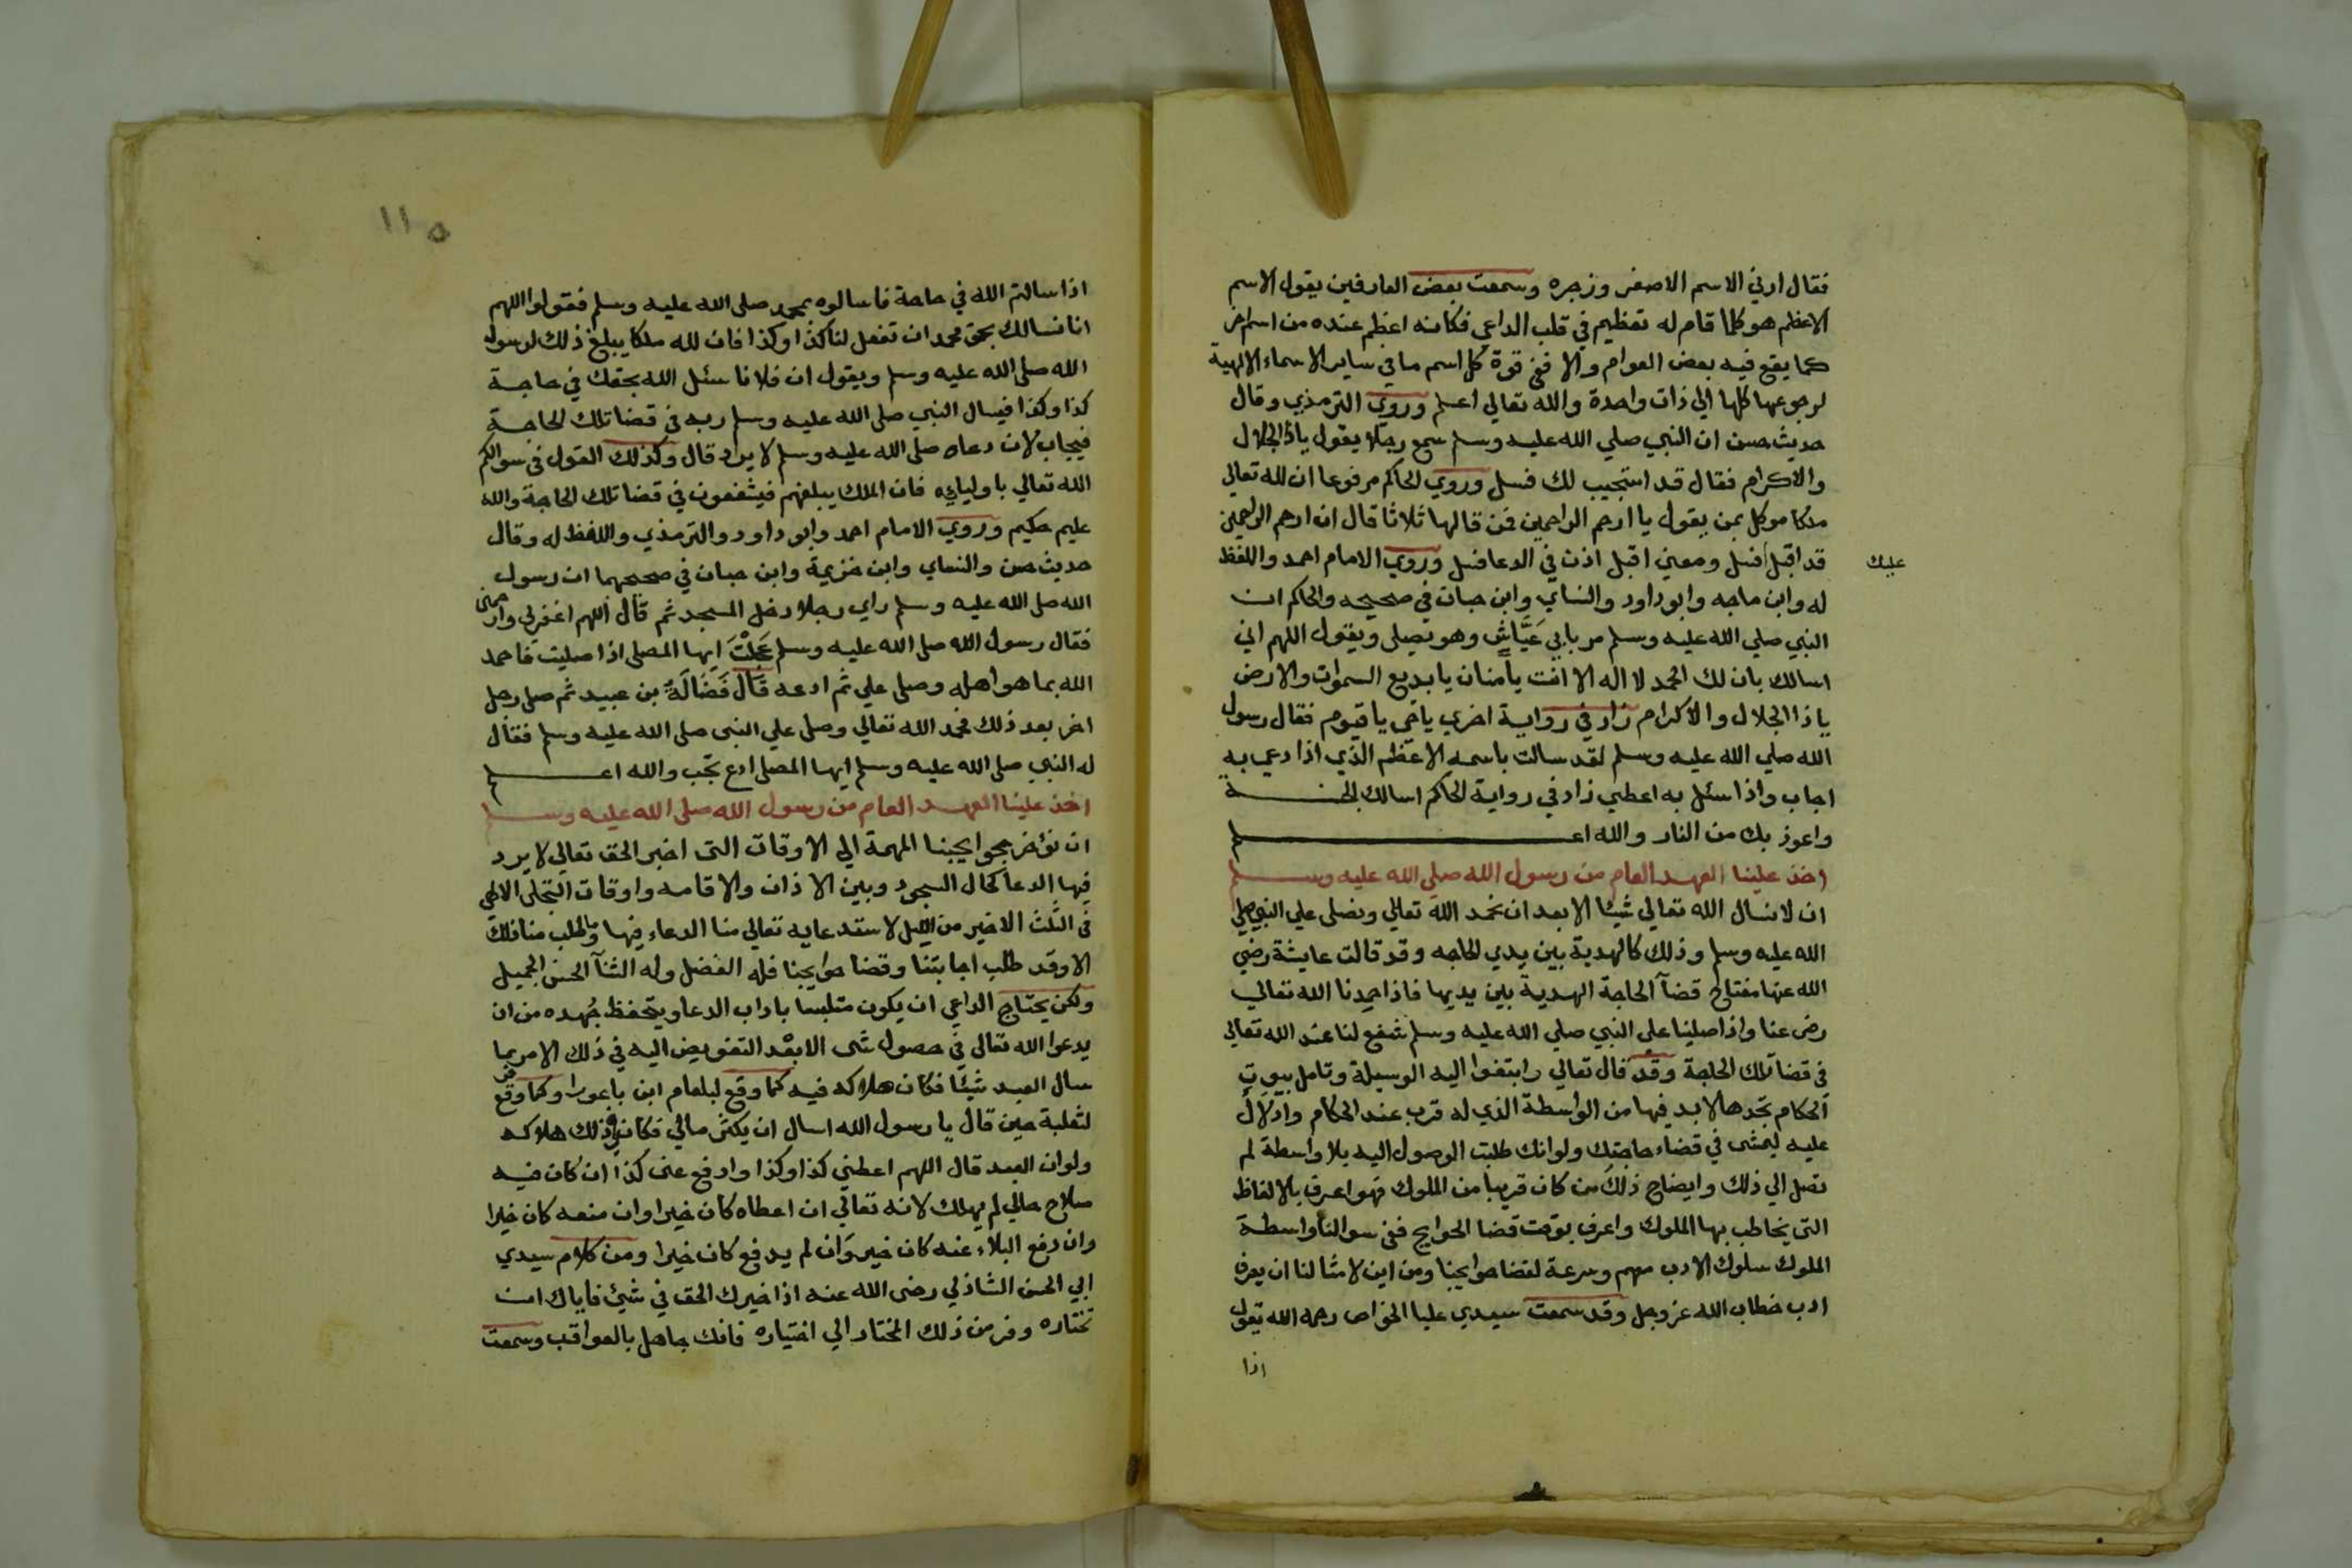 فقال ارني الاسم الاصغر وزجره وسمعت بعض العارفين يقول الاسم
الاعظم هو كلما قام له تعظيم في قلب الداعي فكانه اعظم عنده من اسم اخر
كما يقع فيه بعض العوام والا ففي قوة كل اسم ما في ساير الاسماء الالهية
لرجوعها كلها الي ذات واحدة والله تعالي اعلم وروي الترمذي وقال
حديث حسن ان النبي صلي الله عليه وسلم سمع رجلا يقول ياذا الجلال
والاكرام فقال قد استجيب لك فسل وروي الحاكم مرفوعا ان لله تعالي
ملكا موكل بمن يقول يا ارحم الراحمين فمن قالها ثلاثا قال ان ارحم الراحمين
قد اقبل فسل ومعني اقبل اذن في الدعا فسل وروي الامام احمد واللفظ
عليك
له وابن ماجه وابو داود والنساي وابن حبان في صحيحه والحاكم ان
النبي صلي الله عليه وسلم مر بابي عَيَّاشٍ وهو يصلي ويقول اللهم اني
اسالك بان لك الحمد لا اله الا انت يا منان يا بديع السموات والارض
ياذا الجلال والاكرام زاد في رواية اخري يا حي يا قيوم فقال رسول
الله صلي الله عليه وسلم لقد سالت باسمه الاعظم الذي اذا دعي به
اجاب واذا سئل به اعطي زاد في رواية الحاكم اسالك الجنـــة
واعوذ بك من النار والله اعـــلم
اخذ علينا العهد العام من رسول الله صلي الله عليه وســـلم
ان لا نسال الله تعالي شيئا الا بعد ان نحمد الله تعالي ونصلي علي النبي صلي
الله عليه وسلم وذلك كالهدية بين يدي الحاجه وقد قالت عايشة رضي
الله عنها مفتاح قضآ الحاجة الهدية بين يديها فاذا حمدنا الله تعالي
رضي عنا واذا صلينا علي النبي صلي الله عليه وسلم شفع لنا عند الله تعالي
في قضا تلك الحاجة وقد قال تعالي وابتغوا اليه الوسيلة وتامل بيوت
الحكام تجدها لا بد فيها من الواسطة الذي له قرب عند الحكام وادلال
عليه ليمشي في قضاء حاجتك ولو انك طلبت الوصول اليه بلا واسطة لم
تصل الي ذلك وايضاح ذلك من كان قريبا من الملوك فهو اعرف بالالفاظ
التي يخاطب بها الملوك واعرف بوقت قضا الحوايج ففي سوالنا واسطة
الملوك سلوك الادب معهم وسرعة لقضا حوايجنا ومن اين لامثالنا ان يعرف
ادب خطاب الله عز وجل وقد سمعت سيدي عليا الخواص رحمه الله يقول
اذا
١١٥
اذا سالتم الله في حاجة فاسالوه بمحمد صلي الله عليه وسلم فقولوا اللهم
انا نسالك بحق محمد ان تفعل لنا كذا وكذا فان لله ملكا يبلغ ذلك لرسول
الله صلي الله عليه وسلم ويقول ان فلانا سئل الله بحقك في حاجـة
كذا وكذا فيسال النبي صلي الله عليه وسلم ربه في قضا تلك الحاجـة
فيجاب لان دعاه صلي الله عليه وسلم لا يرد قال وكذلك القول في سوالكم
الله تعالي باوليايه فان الملك يبلغهم فيشفعون في قضا تلك الحاجة والله
عليم حكيم وروي الامام احمد وابو داود والترمذي واللفظ له وقال
حديث حسن والنساي وابن خزيمة وابن حبان في صحيحهما ان رسول
الله صلي الله عليه وسلم راي رجلا دخل المسجد ثم قال اللهم اغفر لي وارحمني
فقال رسول الله صلي الله عليه وسلم عَجِلْتَ ايها المصلي اذا صليت فاحمد
الله بما هو اهله وصلي علي ثم ادعه قال فَضَالَةُ بن عبيد ثم صلي رجل
اخر بعد ذلك فحمد الله تعالي وصلي علي النبي صلي الله عليه وسلم فقال
له النبي صلي الله عليه وسلم ايها المصلي ادع تجب والله اعـــلم
اخذ علينا العهد العام من رسول الله صلي الله عليه وســـلم
ان نؤخر حوايجنا المهمة الي الاوقات التي اخبر الحق تعالي لا يرد
فيها الدعا كحال السجود وبين الاذان والاقامه واوقات التجلي الالهي
في الثلث الاخير من الليل لاستدعايه تعالي منا الدعاء فيها وما طلب منا ذلك
الا وقد طلب اجابتنا وقضا حوايجنا فله الفضل وله الثنآ الحسن الجميل
ولكن يحتاج الداعي ان يكون متلبسا باداب الدعا ويتحفظ جهده من ان
يدعوا الله تعالي في حصول شي الا بعد التفويض اليه في ذلك الامر ربما
سال العبد شيئا فكان هلاكه فيه كما وقع لبلعام ابن باعورا وكما وقع
لثعلبة حين قال يا رسول الله اسال ان يكثر مالي فكان في ذلك هلاكه
ولو ان العبد قال اللهم اعطني كذا وكذا وادفع عني كذا ان كان فيه
صلاح حالي لم يهلك لانه تعالي ان اعطاه كان خيرا وان منعه كان خيرا
وان دفع البلاء عنه كان خير وان لم يدفع كان خيرا ومن كلام سيدي
ابي الحسن الشاذلي رضي الله عنه اذا خيرك الحق في شيئ فاياك ان
تختاره وفر من ذلك المختار الي اختياره فانك جاهل بالعواقب وسمعت